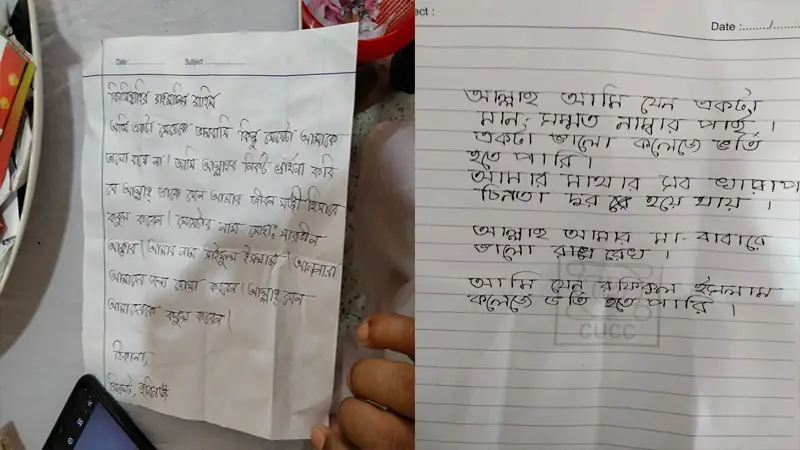 Date :
Subject :
বিসমিল্লাহির রাহমানির রাহিম
আমি একটা মেয়েকে ভালবাসি কিন্তু মেয়েটা আমাকে
ভালো বাসে না। আমি আল্লাহর নিকট প্রার্থনা করি
যে আল্লাহ্ তাকে যেন আমার জীবন সাথী হিসাবে
কবুল করেন। মেয়েটার নাম মোছাঃ পারভীন
আক্তার। আমার নাম সাইফুল ইসলাম। আপনারা
আমাদের জন্য দোয়া করবেন। আল্লাহ যেন
আমাদেরকে কবুল করেন।
ঠিকানা,
ject :
Date :......../........
আল্লাহ আমি যেন একটা
মান: সম্মত নাম্বার পাই।
একটা ভালো কলেজে ভর্তি
হতে পারি।
আমার মাথার সব খারাপ
চিনতা দুর হয়ে যায়।
আল্লাহ আমার মা-বাবারে
ভালো রাখে রেখ।
আমি যেন রফিকুল ইসলাম
কলেজে ভর্তি হতে পারি।
CUCC